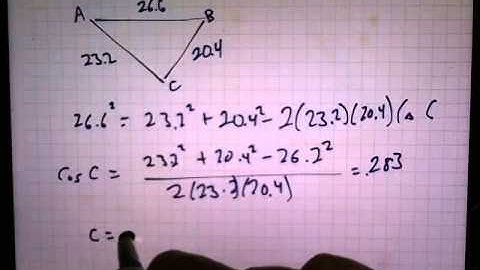 26.6
A B
23.2 20.4
C
26.6² = 23.2² + 20.4² - 2(23.2)(20.4) Cos C
Cos C = 23.2² + 20.4² - 26.2² / 2(23.2)(20.4) = .283
C =